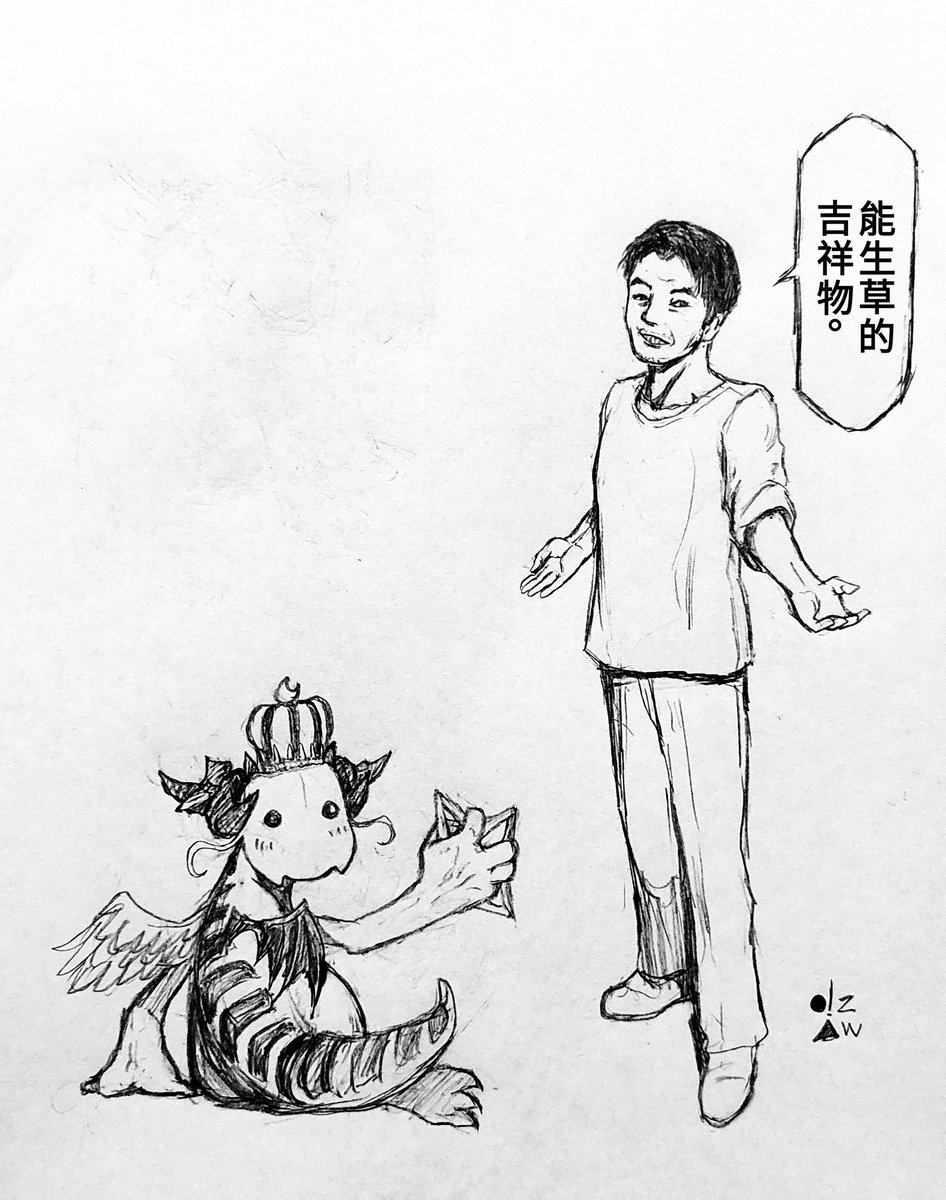 能生草的
吉祥物。
●!Z
▲W